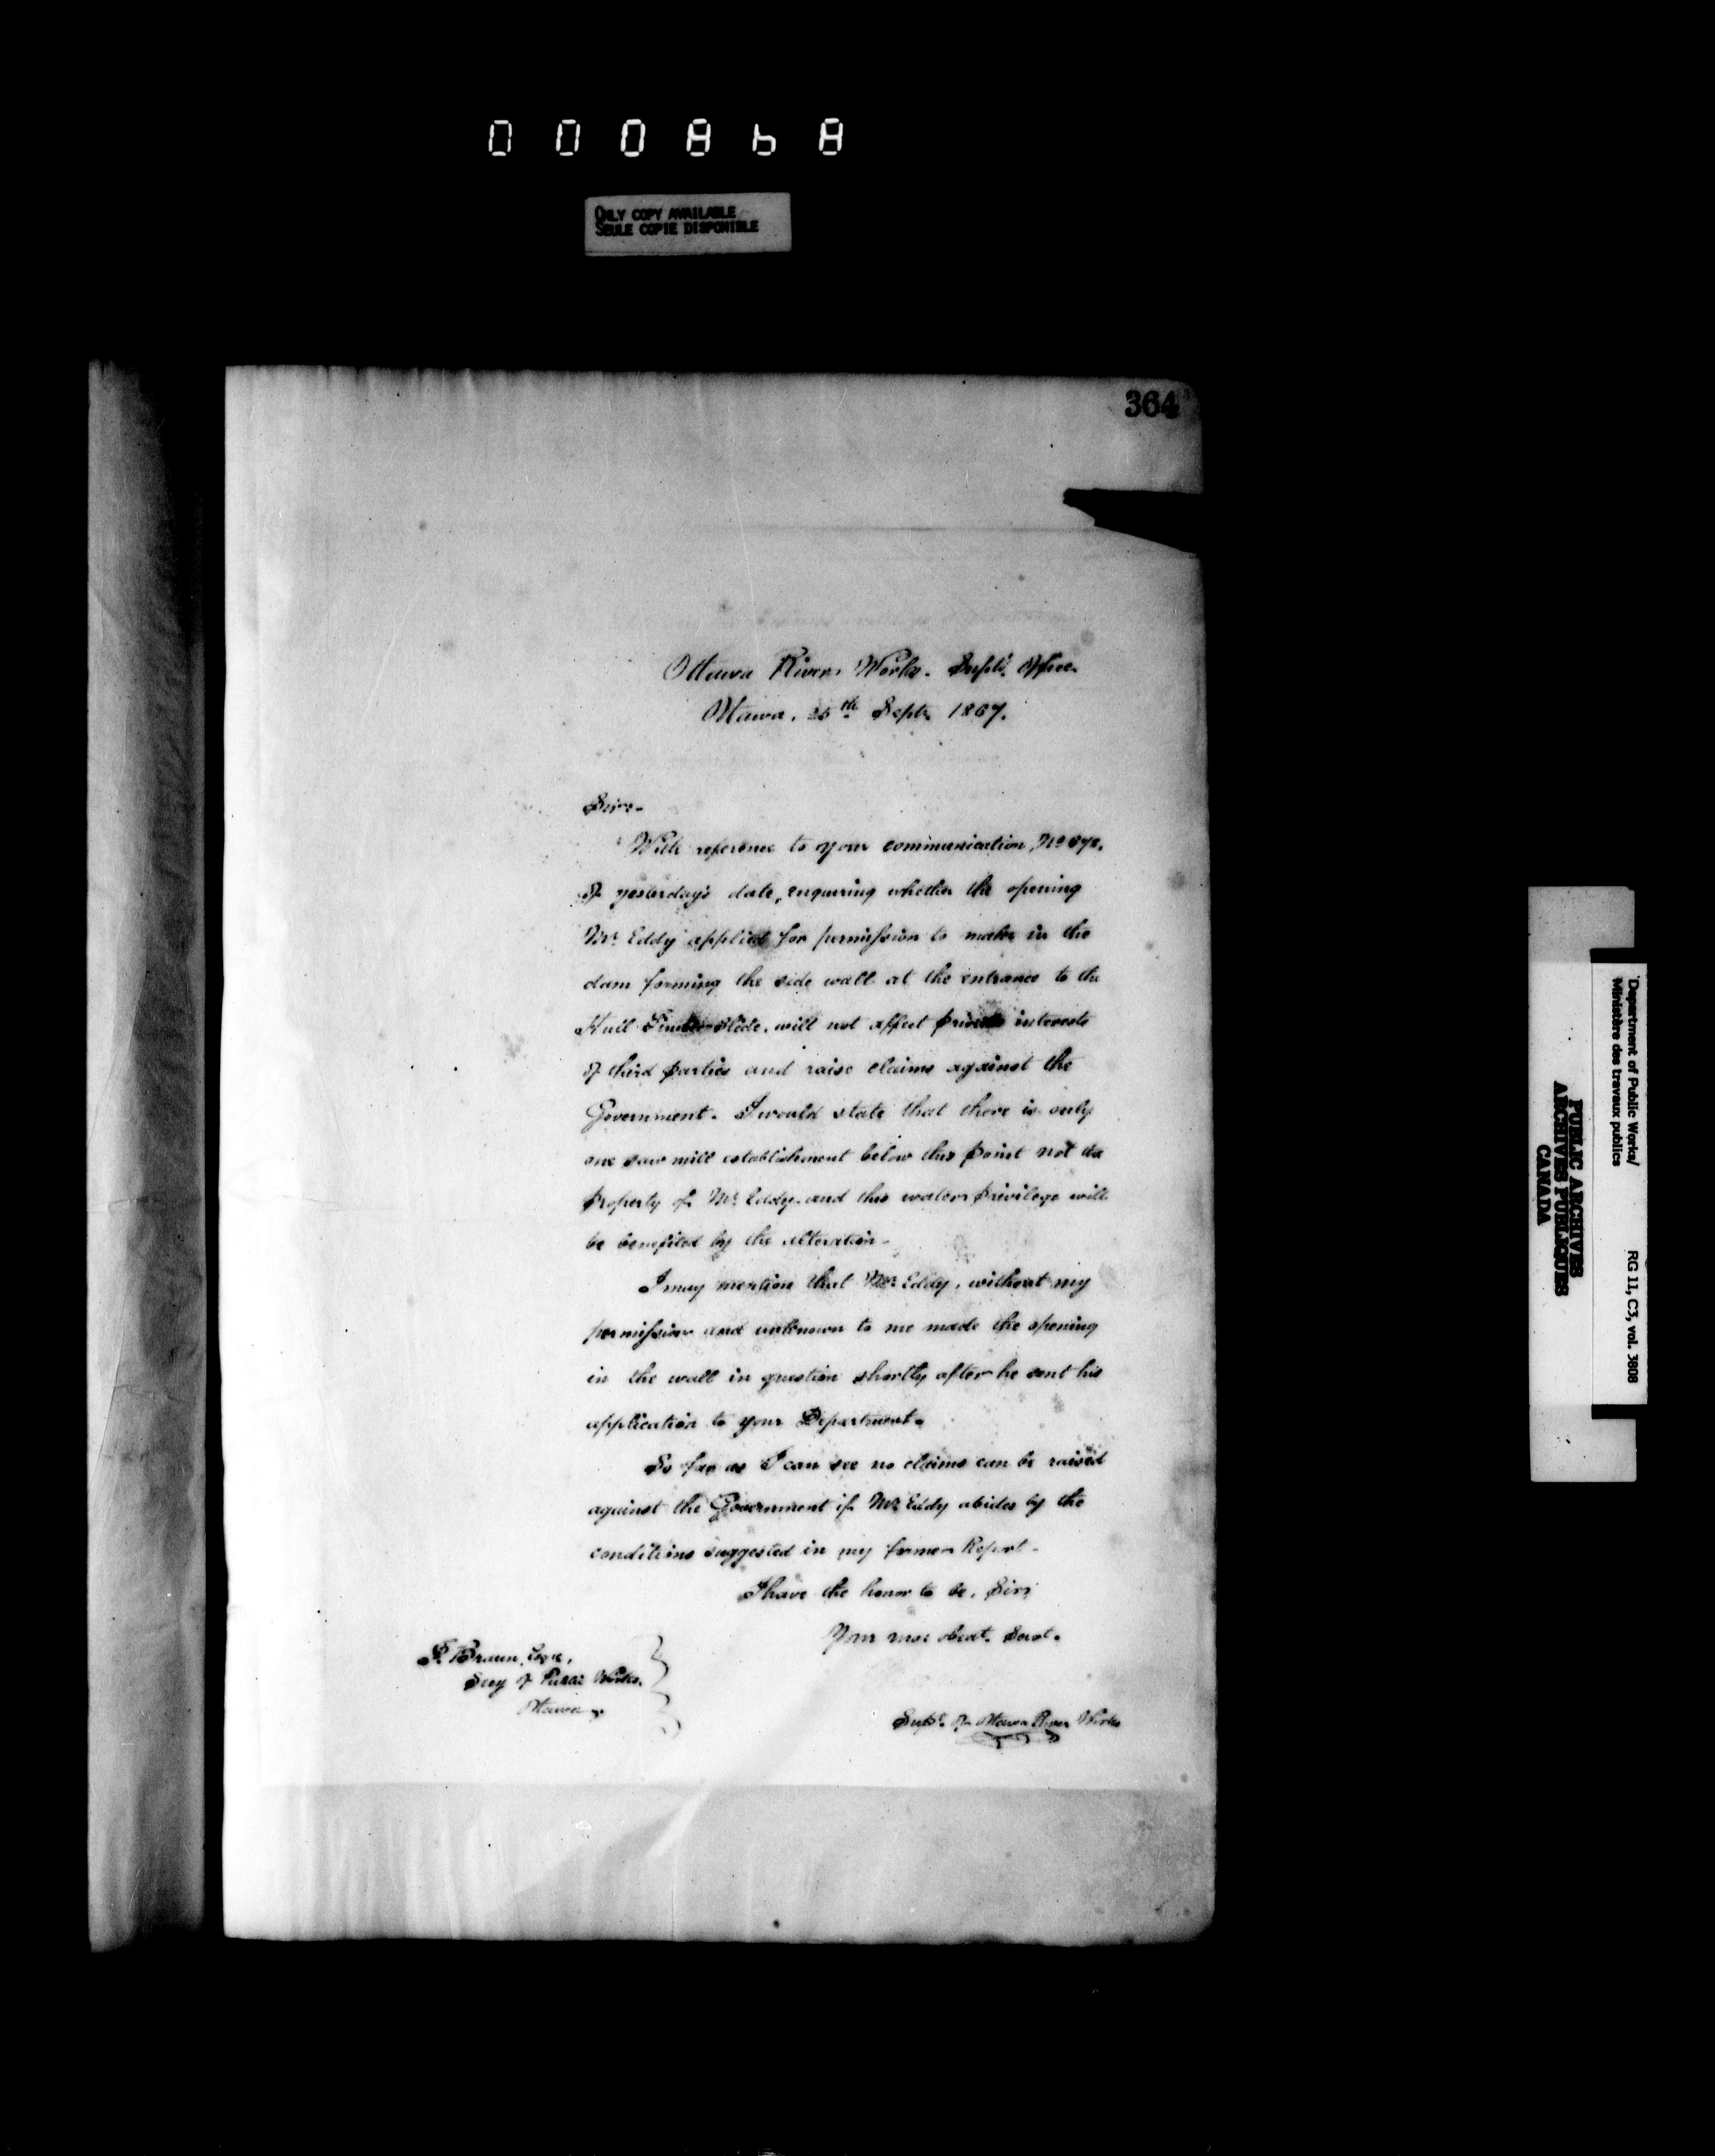 ONLY COPY AVAILABLE
SEULE COPIE DISPONIBLE
364
Ottawa River Works. Supt's. Office
Ottawa, 25th Septr. 1867.
Sir.
With reference to your communication, No
of yesterday's date, enquiring whether the opening
Mr. Eddy applied for permission to make in the
dam forming the side wall at the entrance to the
Hull Timber Slide, will not affect private interests
of third parties and raise claims against the
Government. I would state that there is only
one saw mill establishment below this point not the
property of Mr. Eddy and this water privilege will
be benefited by the alteration.
I may mention that Mr. Eddy, without my
permission and unknown to me made the opening
in the wall in question shortly after he sent his
application to your Department.
So far as I can see no claims can be raised
against the Government if Mr. Eddy abides by the
conditions suggested in my former Report.
I have the honor to be, Sir,
Your obedt. Servt.
F. Braun, Esqre,
Secy of Public Works.
Ottawa
Supt. Ottawa River Works
Department of Public Works/
Ministère des travaux publics
RG 11, C3, vol. 3808
PUBLIC ARCHIVES
ARCHIVES PUBLIQUES
CANADA